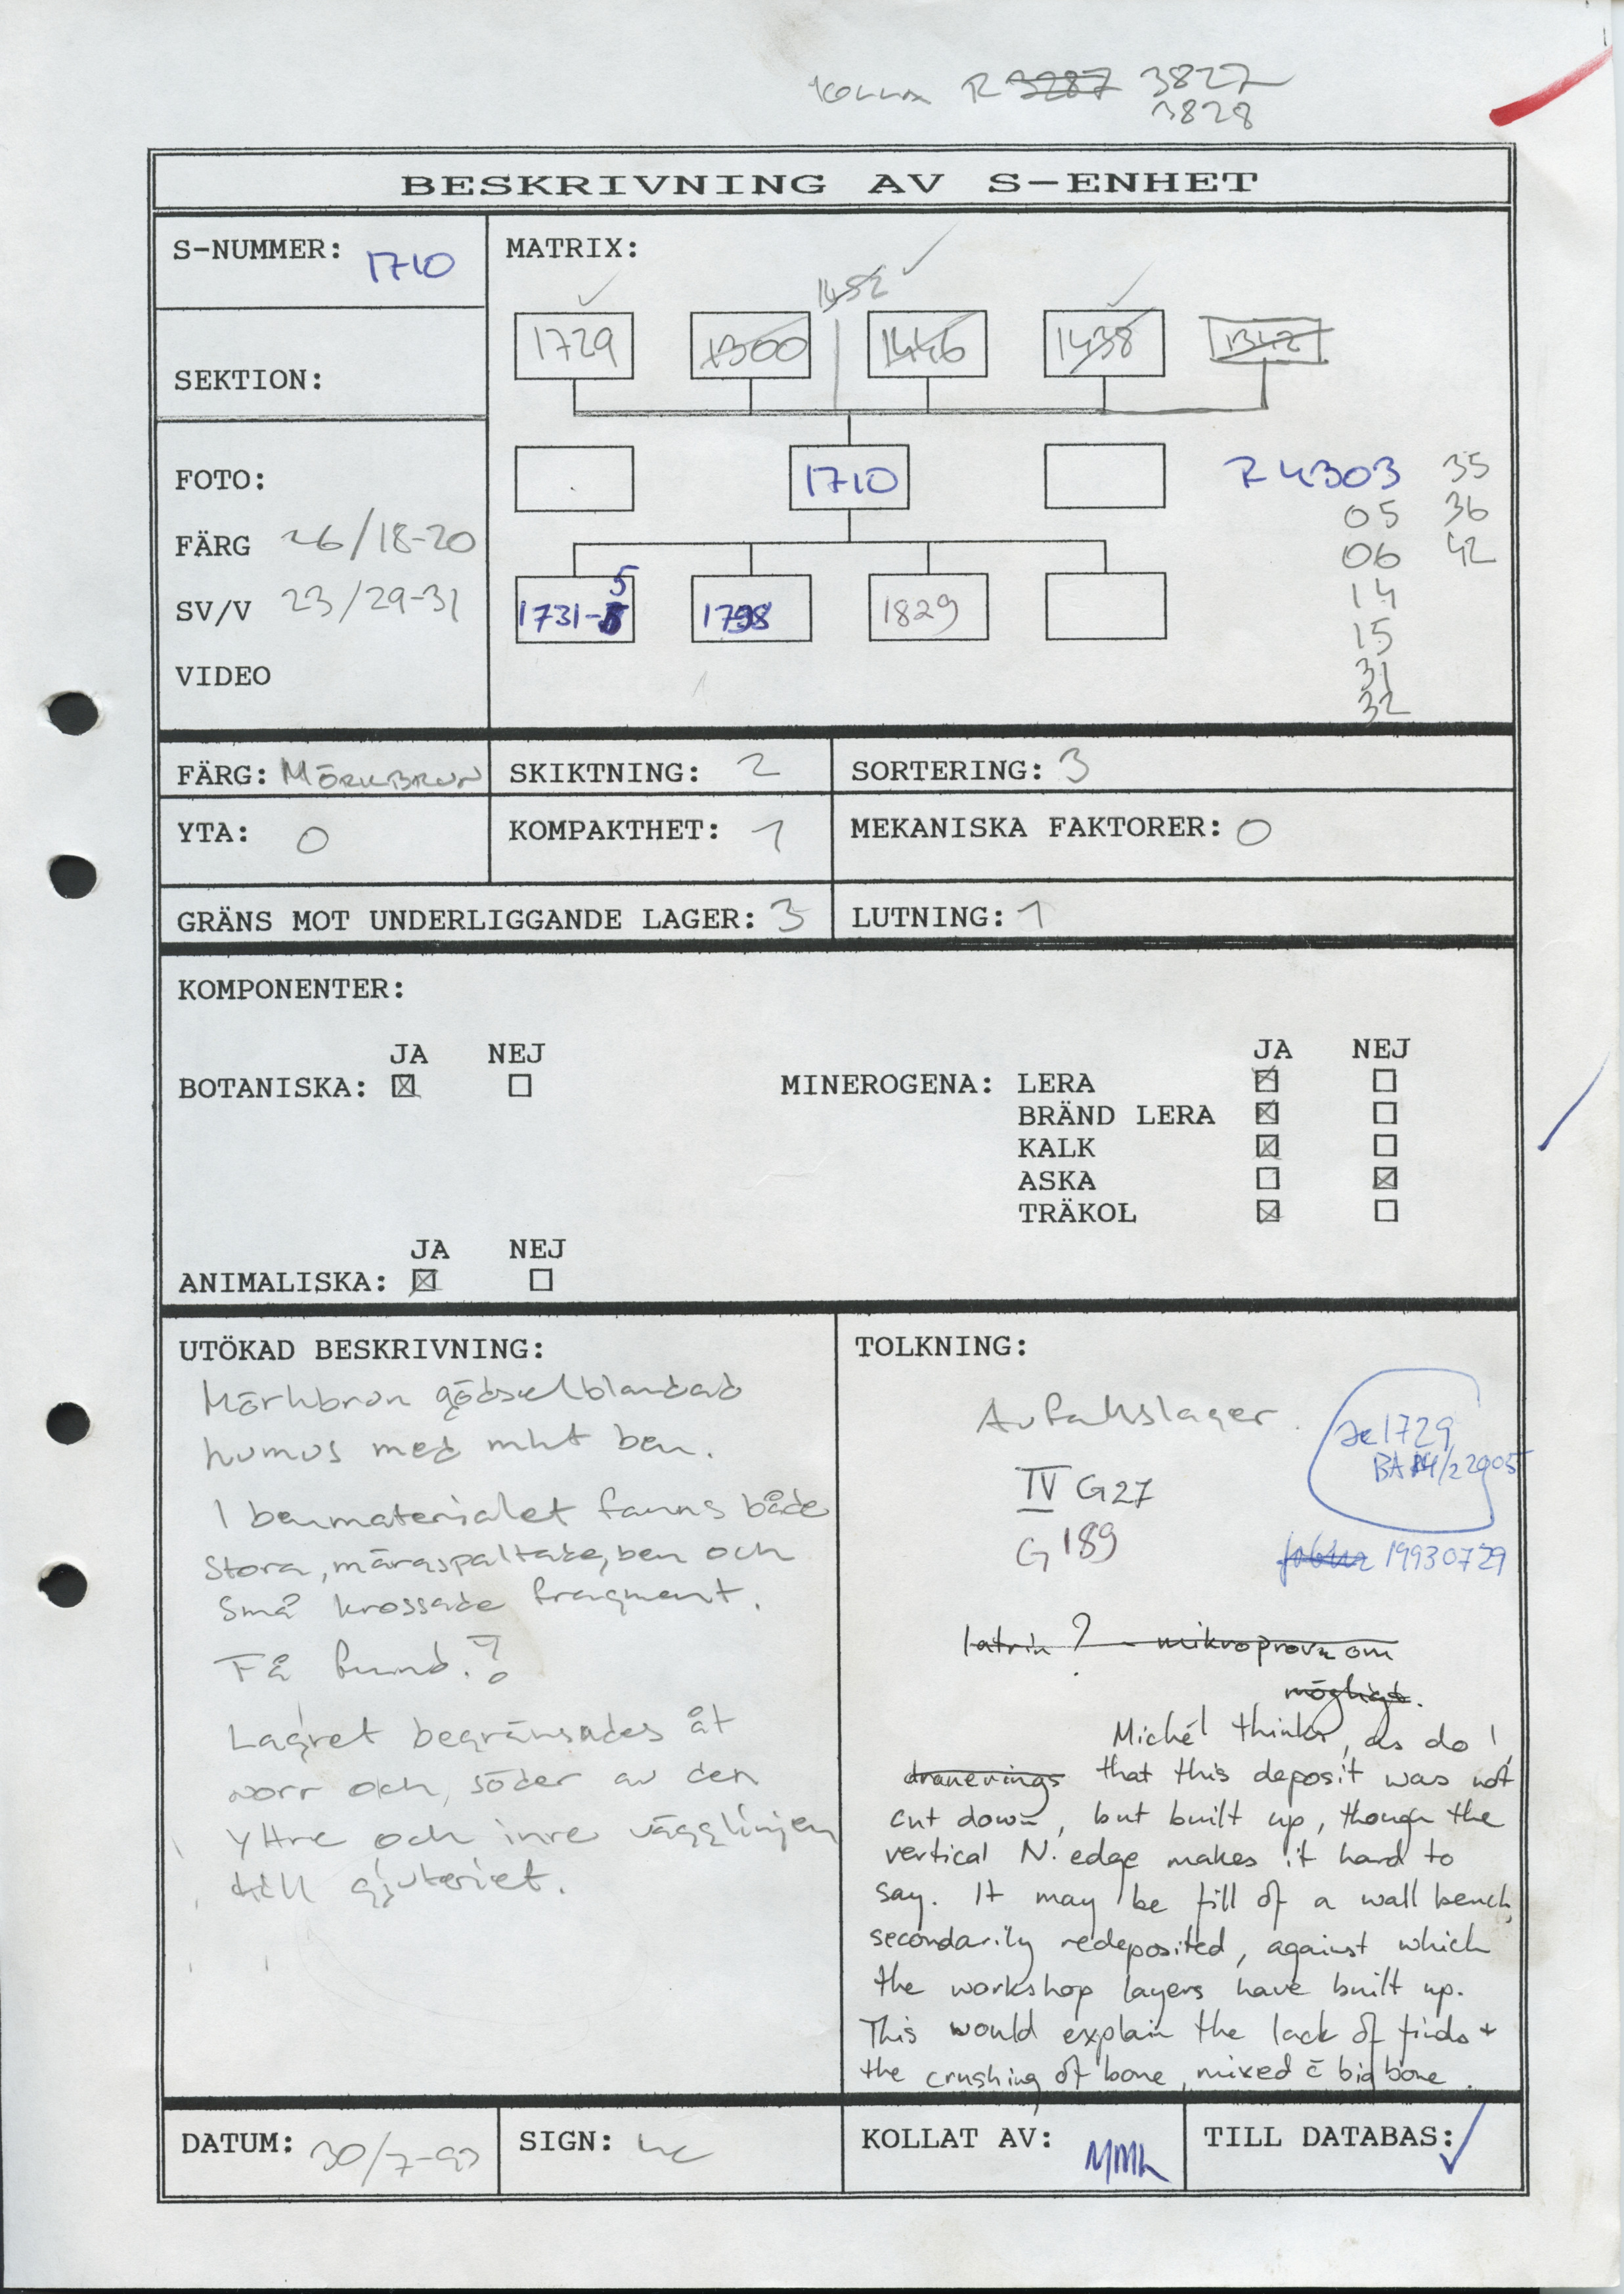 Kolla R 3287 3827
3828
BESKRIVNING AV S-ENHET
S-NUMMER: 1710
MATRIX:
1452
1729 1300 1446 1438 1342
SEKTION:
1710
R 4303 35
05 36
06 42
14
15
31
32
FOTO:
FÄRG 26/18-20
SV/V 23/29-31
VIDEO
5
1731-5 1798 1829
FÄRG: MÖRKBRUN SKIKTNING: 2 SORTERING: 3
YTA: 0 KOMPAKTHET: 1 MEKANISKA FAKTORER: 0
GRÄNS MOT UNDERLIGGANDE LAGER: 3 LUTNING: 1
KOMPONENTER:
JA NEJ JA NEJ
BOTANISKA: MINEROGENA: LERA
BRÄND LERA
KALK
ASKA
TRÄKOL
JA NEJ
ANIMALISKA:
UTÖKAD BESKRIVNING:
Mörkbrun gödselblandad
humus med mkt ben.
I benmaterialet fanns både
stora, märgspaltade, ben och
små krossade fragment.
Få fynd.?
Lagret begränsades åt
norr och, söder av den
yttre och inre vägglinjen
till gjuteriet.
TOLKNING:
Avfallslager.
1729
IV G27
G 189
19930729
latrin? - mikroprova om
möjligt.
Michél thinks, as do I,
that this deposit was not
cut down, but built up, though the
vertical N. edge makes it hard to
say. It may be fill of a wall bench,
secondarily redeposited, against which
the workshop layers have built up.
This would explain the lack of finds +
the crushing of bone, mixed c̄ big bone.
DATUM: 30/7-93 SIGN: KOLLAT AV: MMH TILL DATABAS: